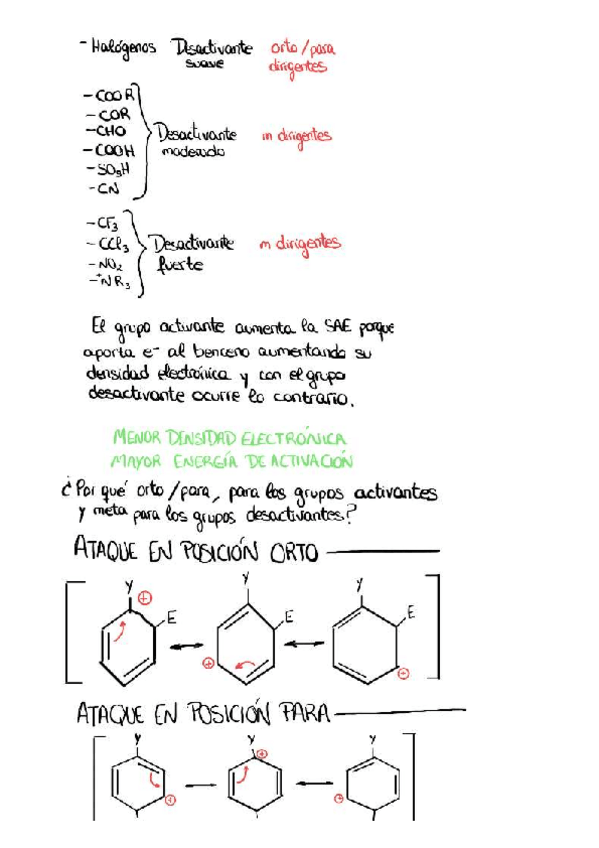 - Halógenos Desactivante suave orto/para dirigentes
- COOR
- COR
- CHO
- COOH
- SO3H
- CN
Desactivante moderado m dirigentes
- CF3
- CCl3
- NO2
- +NR3
Desactivante fuerte m dirigentes
El grupo activante aumenta la SAE porque
aporta e- al benceno aumentando su
densidad electrónica y con el grupo
desactivante ocurre lo contrario.
MENOR DENSIDAD ELECTRÓNICA
MAYOR ENERGÍA DE ACTIVACIÓN
¿Por qué orto/para, para los grupos activantes
y meta para los grupos desactivantes?
ATAQUE EN POSICIÓN ORTO
Y + E
Y E +
Y E +
ATAQUE EN POSICIÓN PARA
Y +
Y +
Y +